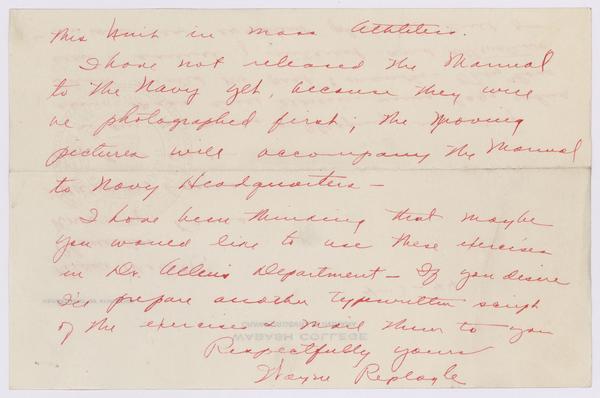 this Unit in mass Athletics.
I have not released the Manual
to the Navy yet, because they will
be photographed first; the moving
pictures will accompany the Manual
to Navy Headquarters —
I have been thinking that maybe
you would like to use these exercises
in Dr. Allen's Department — If you desire
I'll prepare another typewritten script
of the exercises & mail them to you
Respectfully yours
Wayne Replogle
WABASH COLLEGE